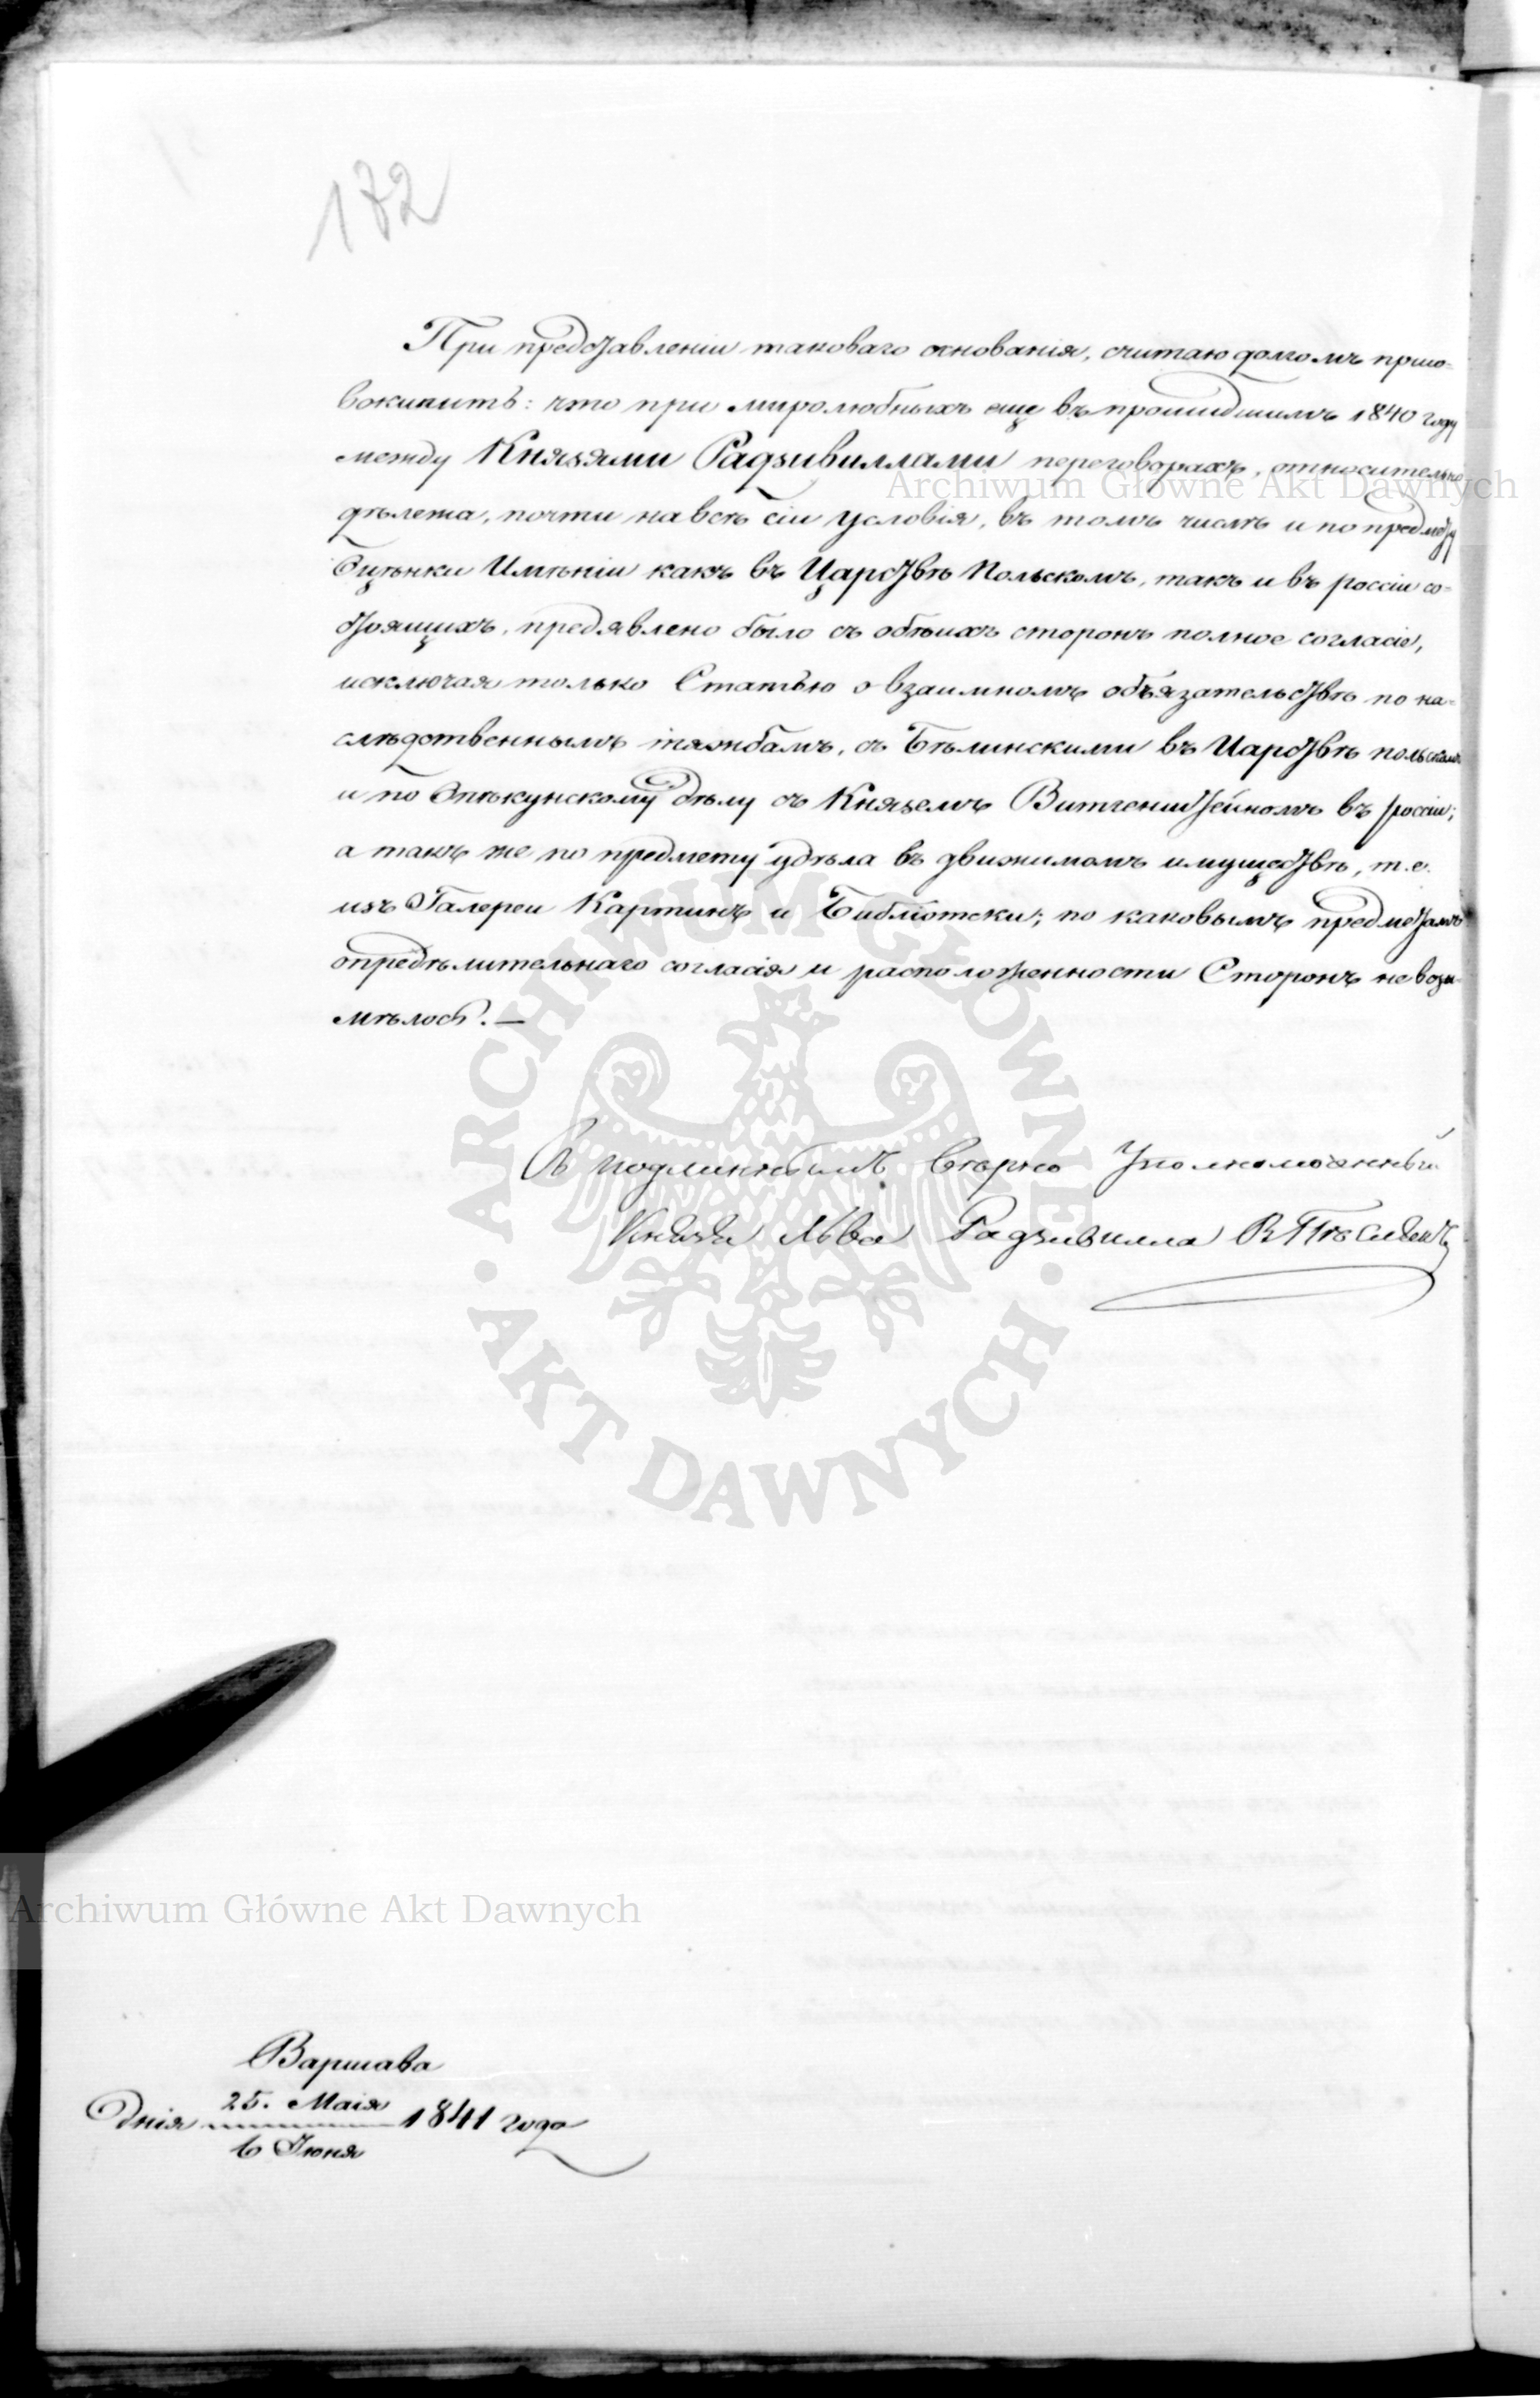 132
При представленіи таковаго основанія, считаю долгомъ присо-
вокупить: что при миролюбныхъ еще въ прошедшимъ 1840 году
между Князьями Радзивиллами переговорахъ, относительно
дѣлежа, почти на всѣ сіи условія, въ томъ числѣ и по предмету
Оцѣнки Имѣніи какъ въ Царствѣ Польскомъ, такъ и въ россіи со-
стоящихъ, предявлено было съ обѣихъ сторонъ полное согласіе,
исключая только Статью о взаимномъ объязательствѣ по на-
слѣдственнымъ тяжбамъ, съ Бѣлинскими въ Царствѣ польскомъ
и по Опѣкунскому дѣлу съ Княземъ Витгенштейномъ въ россіи;
а такъ же по предмету удѣла въ движимомъ имуществѣ, т.е.
изъ Галереи Картинъ и Библіотеки; по каковымъ предметамъ
опредѣлительнаго согласія и расположенности Сторонъ не возы-
мѣлось. —
Съ подлиннымъ вѣрно Уполномоченный
Князя Льва Радзивилла
Варшава
Дніа 25. Маія 1841 года
6 Іюня
Archiwum Główne Akt Dawnych
Archiwum Główne Akt Dawnych
ARCHIWUM GŁÓWNE · AKT DAWNYCH ·